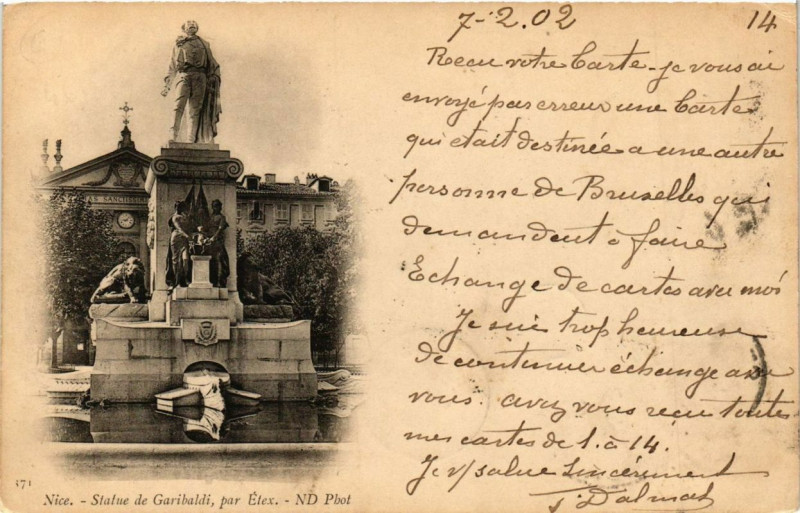 7-2.02
14
Recu votre Carte - je vous ai
envoyé par erreur une Carte
qui etait destinée a une autre
personne de Bruxelles qui
demandent à faire
Echange de cartes avec moi
Je suis trop heureuse
de continuer échange avec
vous. avez vous reçu toutes
mes cartes de 1. à 14.
Je v/ salue Sincèrement
J. Dalmas
371
Nice. - Statue de Garibaldi, par Étex. - ND Phot